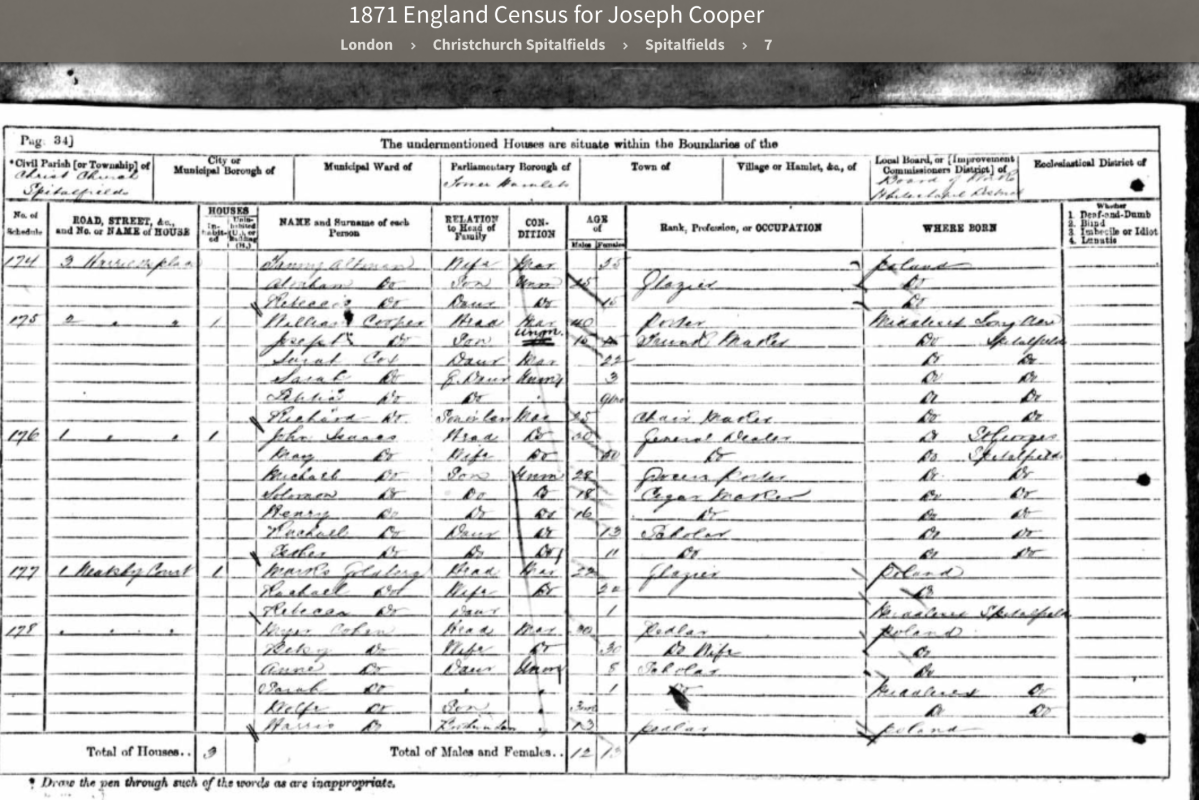 1871 England Census for Joseph Cooper
London › Christchurch Spitalfields › Spitalfields › 7
Pag. 34]
The undermentioned Houses are situate within the Boundaries of the
*Civil Parish [or Township] of
City or Municipal Borough of
Municipal Ward of
Parliamentary Borough of
Town of
Village or Hamlet, &c., of
Local Board, or [Improvement Commissioners District] of
Ecclesiastical District of
Christ Church Spitalfields
Tower Hamlets
Board of Works
District
No. of Schedule
ROAD, STREET, &c., and No. or NAME of HOUSE
HOUSES
In-habit-ed
Unin-habited (U.), or Building (B.)
NAME and Surname of each Person
RELATION to Head of Family
CON-DITION
AGE of
Males
Females
Rank, Profession, or OCCUPATION
WHERE BORN
Whether
1. Deaf-and-Dumb
2. Blind
3. Imbecile or Idiot
4. Lunatic
174 3 Altman Wife Mar 35 Poland
Abraham Do Son Unm 15 Glazier Do
Rebecca Do Daur Do 16 Do
175 2 " " 1 William Cooper Head Mar 40 Porter Middlesex Long Acre
Joseph Do Son Unm 15 Trunk Maker Do Spitalfields
Sarah Cox Daur Mar 22 Do Do
Sarah Do G. Daur Unm 3 Do Do
Do Do 9mo Do Do
Richard Do Son in law Mar 25 Chair Maker Do Do
176 1 " " 1 John Isaacs Head Do 50 General Dealer Do St Georges
May Do Wife Do 50 Do Do Spitalfields
Michael Do Son Unm 28 Green Porter Do Do
Solomon Do Do Do 18 Cigar Maker Do Do
Henry Do Do Do 16 Do Do Do
Rachael Do Daur Do 13 Scholar Do Do
Esther Do Do Do 11 Do Do Do
177 1 Court 1 Marks Goldberg Head Mar 22 Glazier Poland
Rachael Do Wife Do 22 Do
Rebecca Do Daur 1 Middlesex Spitalfields
178 " " " Meyer Cohen Head Mar 30 Pedlar Poland
Do Wife Do 30 Do Wife Do
Anne Do Daur Unm 8 Scholar Do
Sarah Do " " 1 Do Middlesex Do
Wolfe Do Son " 3mo Do Do
Harris Do " 13 Pedlar Poland
Total of Houses.. 3
Total of Males and Females.. 12 13
* Draw the pen through such of the words as are inappropriate.